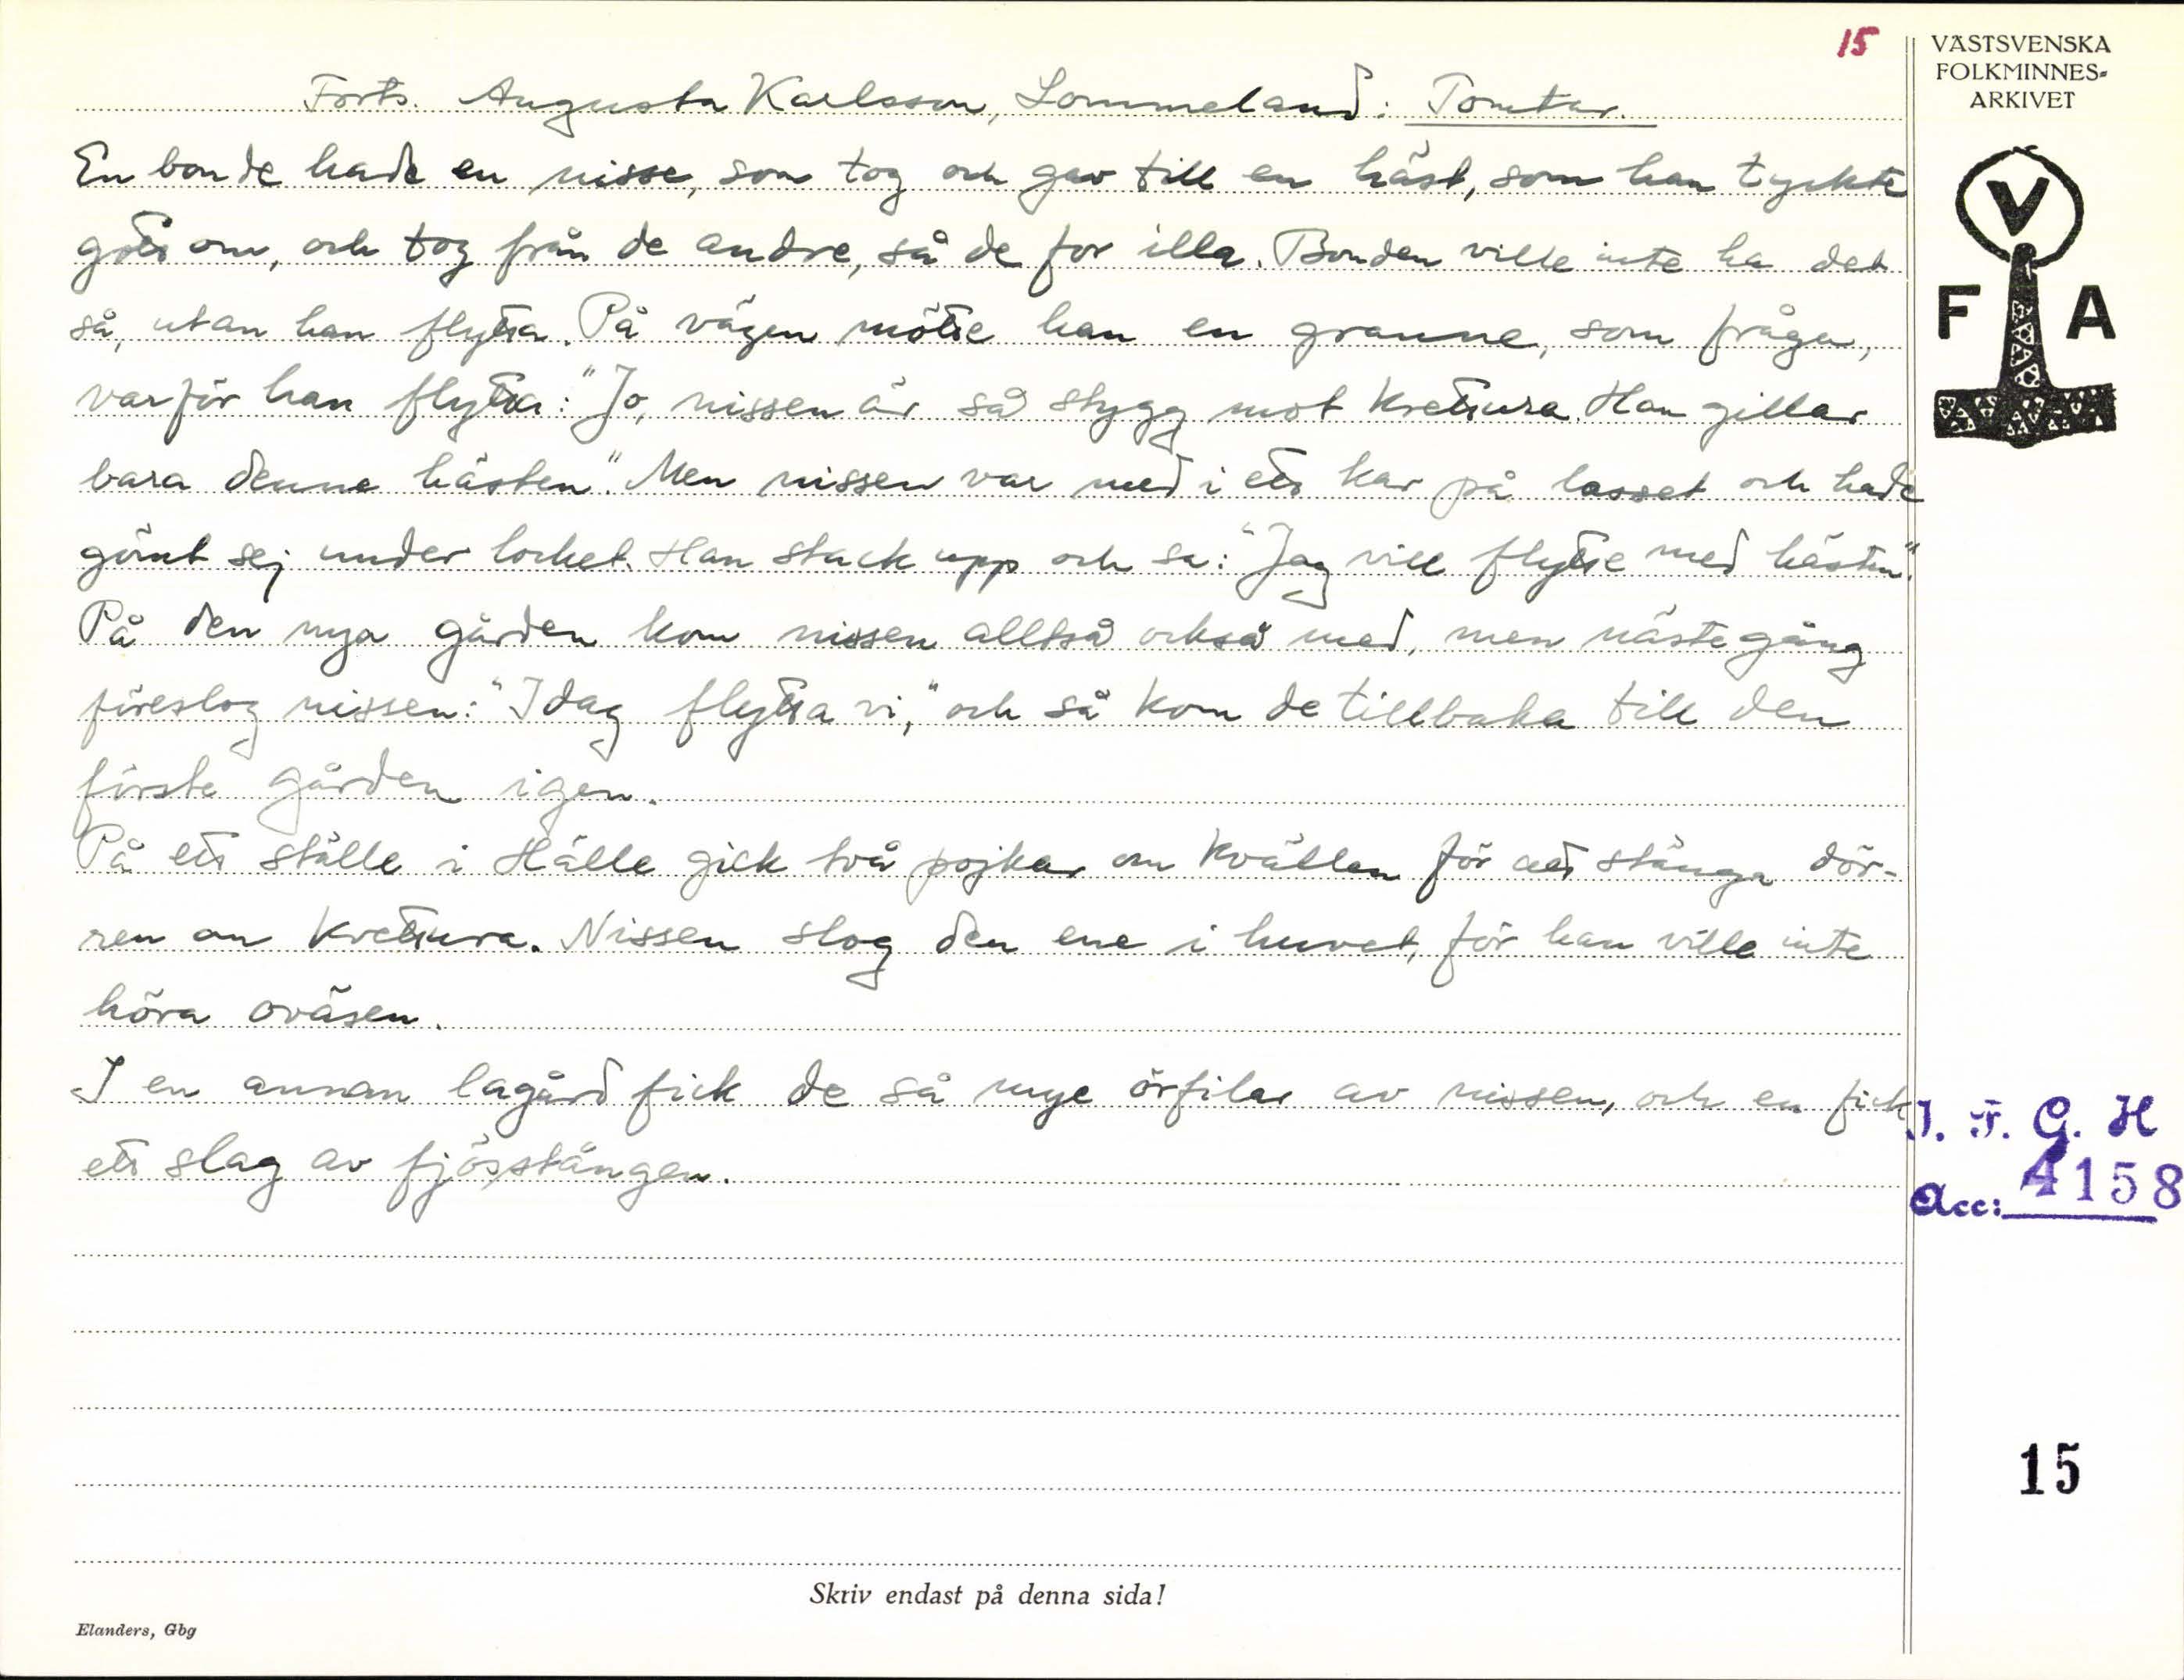 15
VÄSTSVENSKA
FOLKMINNES-
ARKIVET
V
F A
Forts. Augusta Karlsson, Lommeland: Tomtar.
En bonde hade en nisse, som tog och gav till en häst, som han tyckte
gott om, och tog från de andre, så de for illa. Bonden ville inte ha det
så, utan han flytta. På vägen mötte han en granne, som fråga,
varför han flytta: "Jo, nissen är så stygg mot kretura. Han gillar
bara denne hästen." Men nissen var med i ett kar på lasset och hade
gömt sej under locket. Han stack upp och sa: "Jag vill flytte med hästen."
På den nya gården kom nissen alltså också med, men näste gång
föreslog nissen: "Idag flytta vi," och så kom de tillbaka till den
förste gården igen.
På ett ställe i Hälle gick två pojkar om kvällen för att stänga dör-
ren om kretura. Nissen slog den ene i huvet, för han ville inte
höra oväsen.
I en annan lagård fick de så mye örfilar av nissen, och en fick
ett slag av fjösstången.
I. F. G. H
Acc: 4158
15
Skriv endast på denna sida!
Elanders, Gbg